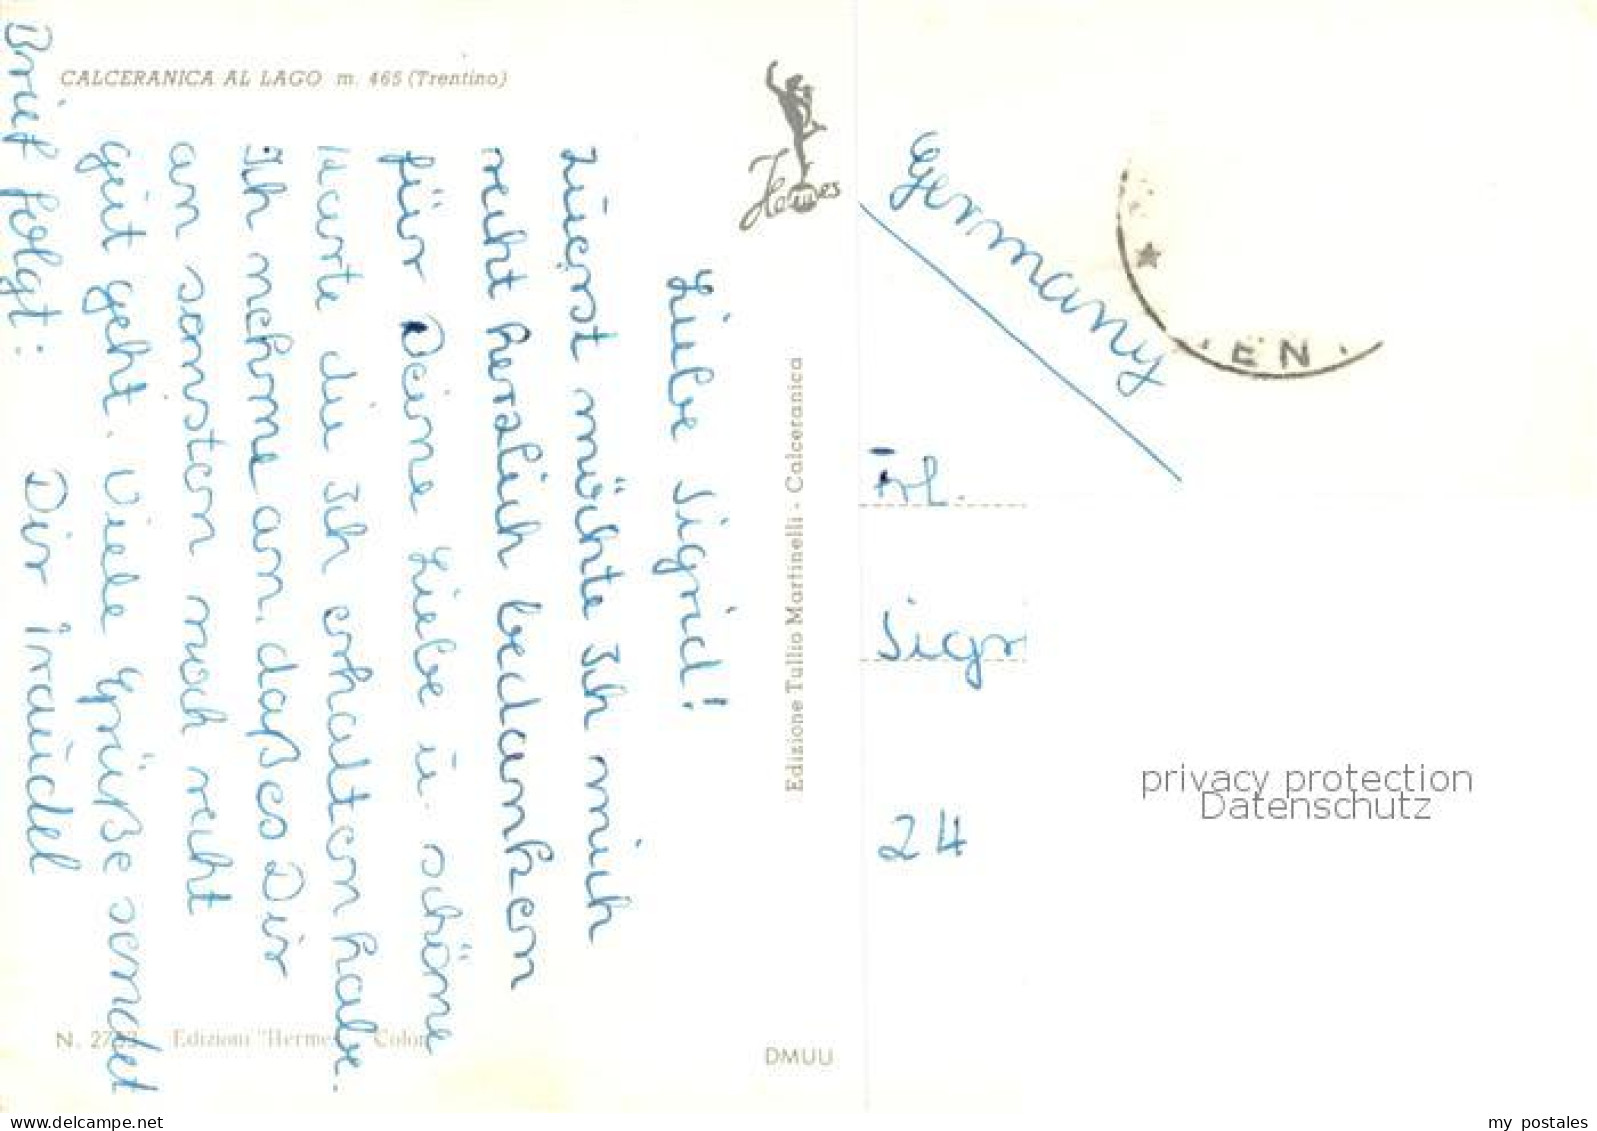 CALCERANICA AL LAGO m. 465 (Trentino)
Hermes
Liebe Sigrid!
Zuerst möchte Ich mich
recht herzlich bedanken
für Deine Liebe u. schöne
Karte die Ich erhalten habe.
Ich nehme an, daß es Dir
an sonsten noch recht
gut geht. Viele Grüße sendet
Dir Traudel
Brief folgt:
Edizione Tullio Martinelli - Calceranica
N. 27 Edizioni "Herme Color
DMUU
Germany
EN
Frl.
Sigr
24
privacy protection
Datenschutz
delcampe.net
my_postales